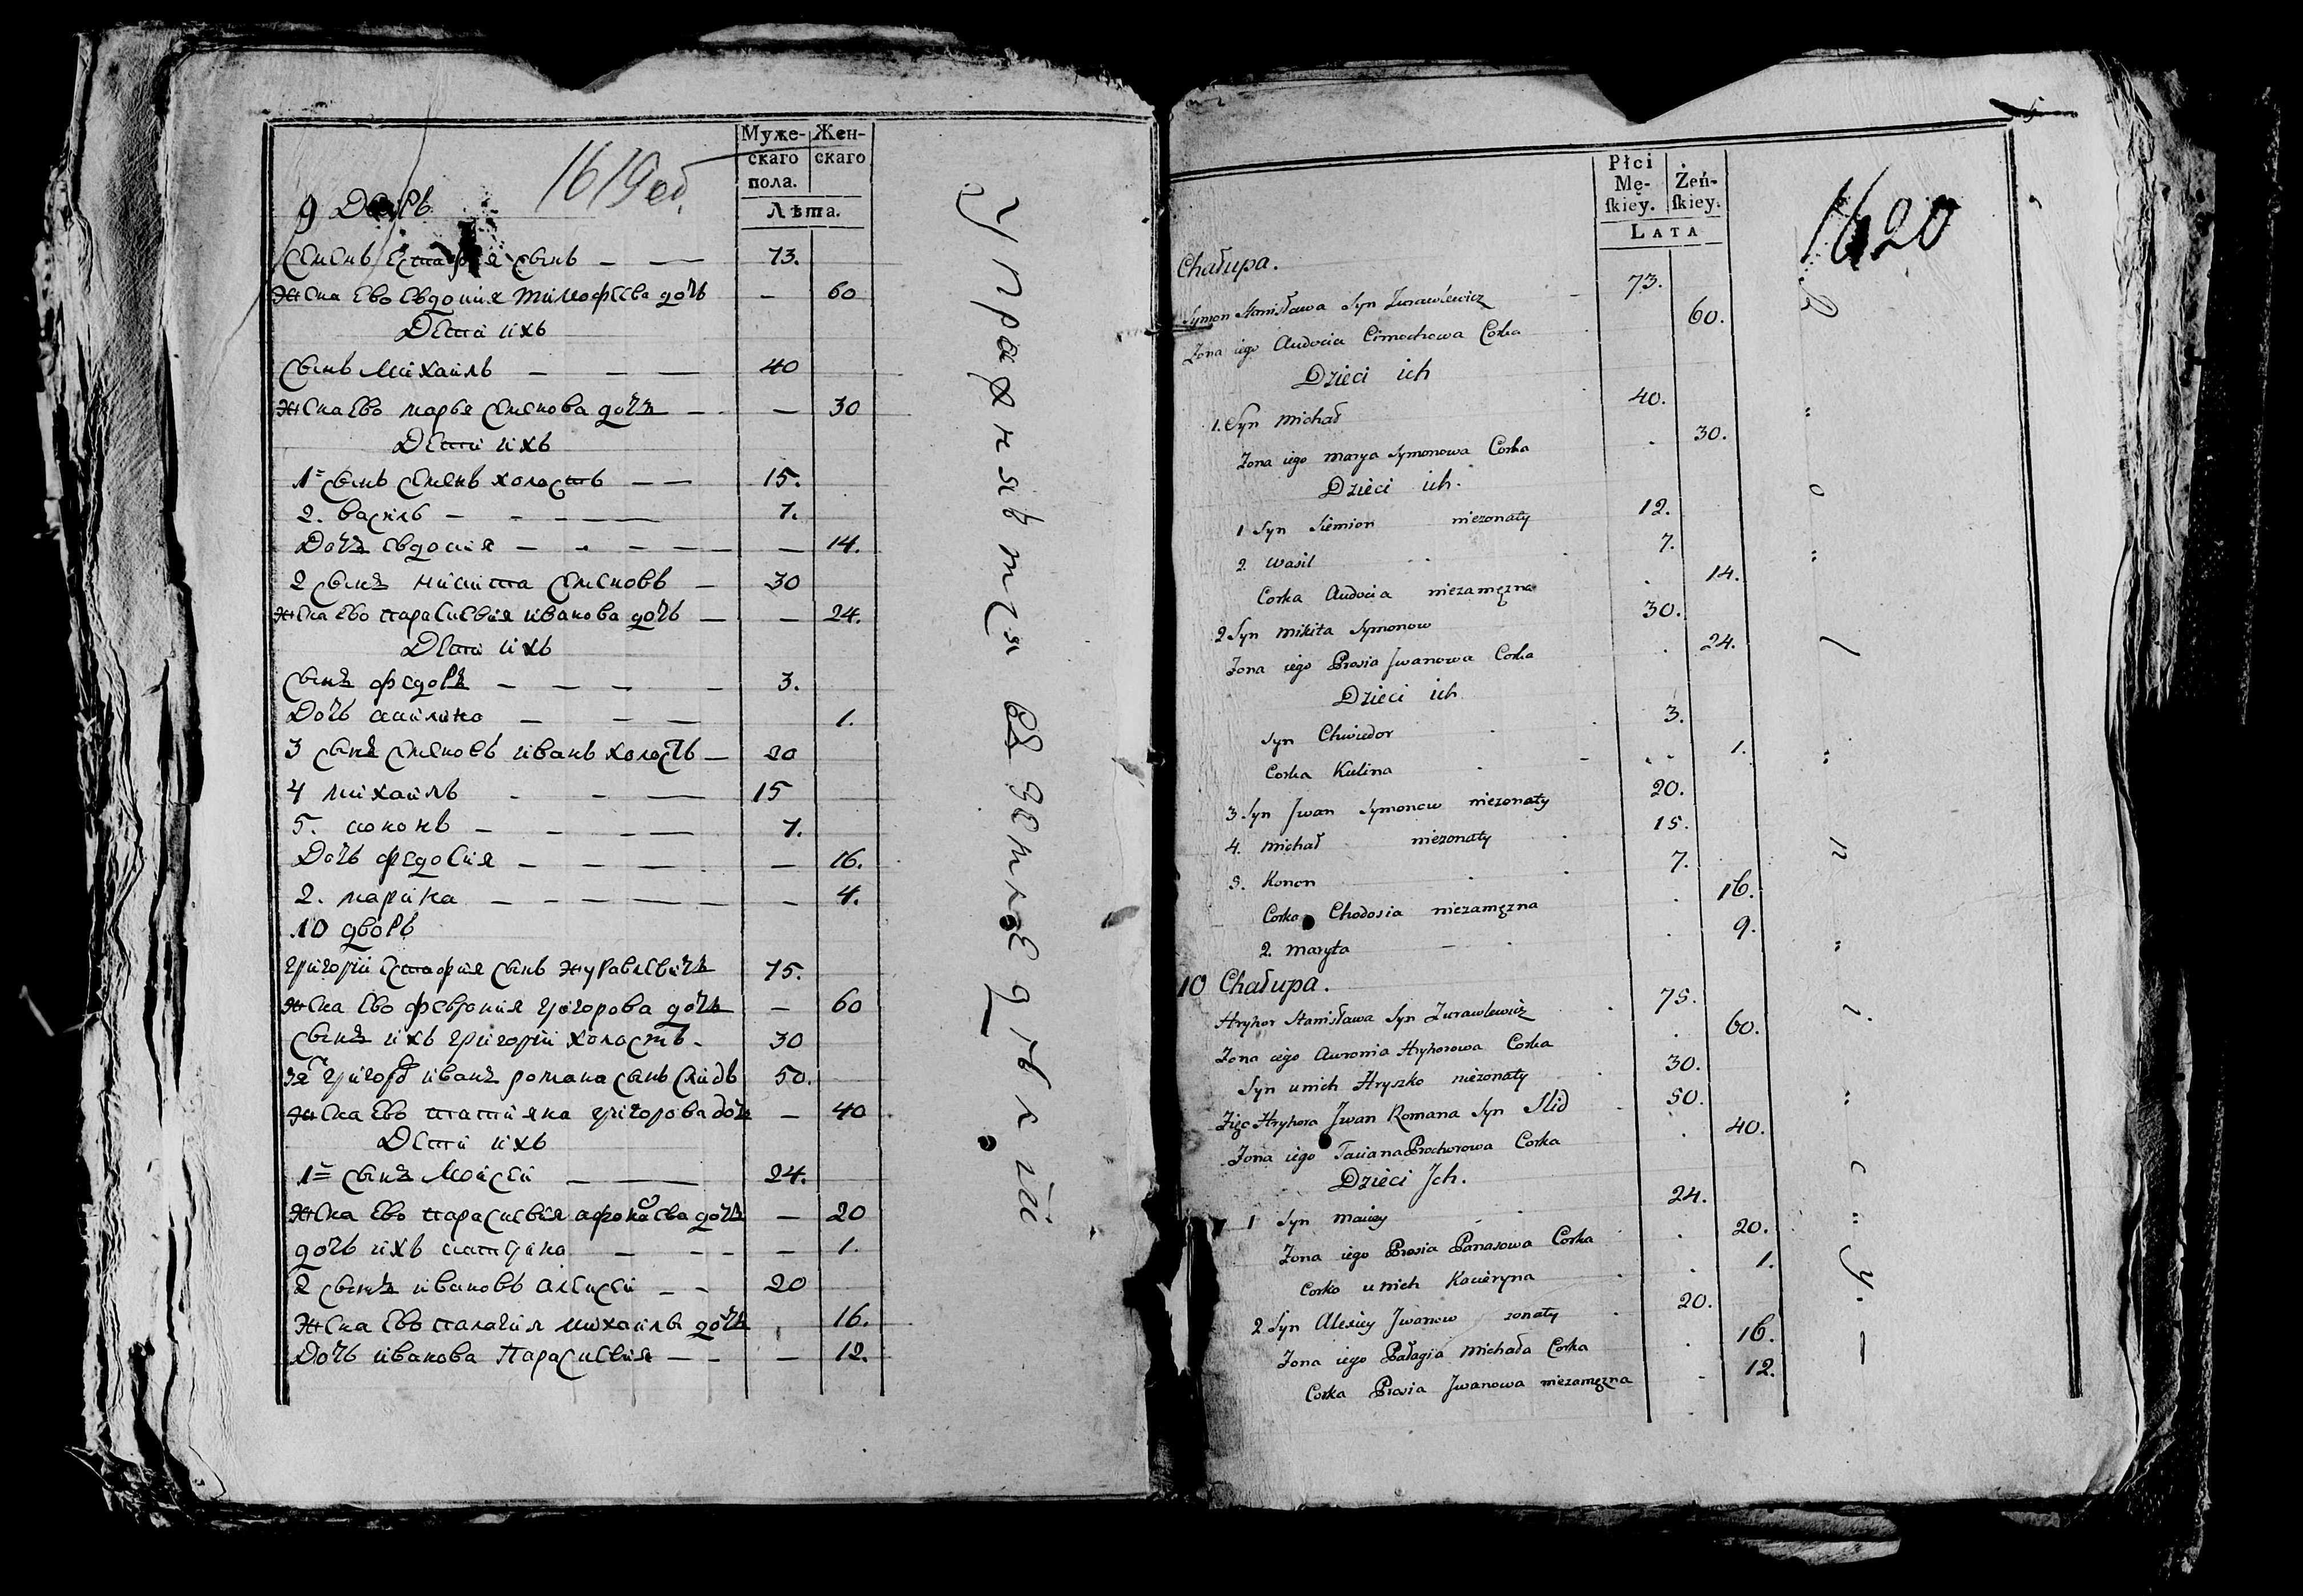 Муже- Жен-
скаго скаго
пола.
Лѣта.
1619 об.
9 Дворъ
Семенъ Естафія сынъ — — 73.
Жена ево Евдокия Тимофеева дочь — 60
Дети ихъ
Сынъ Михаилъ — — — 40
Жена ево Марья Семенова дочъ — — 30
Дети ихъ
1й сынъ Семенъ холостъ — — 15.
2. Василь — — — — 7.
Дочъ Евдокия — — — — — 14.
2 сынъ Никита Семеновъ — 30
Жена ево Параскевия Иванова дочь — — 24.
Дети ихъ
Сынъ Федоръ — — — — 3.
Дочь Акилина — — — 1.
3 сынъ Семеновъ Иванъ холостъ — 20
4 Михаилъ — — — 15
5. Кононъ — — — — 7.
Дочь Федосия — — — — — 16.
2. Марина — — — — — — 4.
10 дворъ
Григорій Естафия сынъ Журавлевичъ 75.
Жена ево Феврония Григорова дочъ — 60
Сынъ ихъ Григорій холостъ — 30
Зя Григоръ Иванъ Романа сынъ Слидъ 50.
Жена ево Татияна Григорова дочъ — 40
Дети ихъ
1й сынъ Мойсей — — 24.
Жена ево Параскевия Афонасева дочъ — 20
дочь ихъ Катерина — — — — 1.
2 сынъ Ивановъ Алексей — — 20
Жена ево Палагия Михаила дочъ 16.
Дочь Иванова Параскевия — — — 12.
Упражняются въ земледѣлїи
Płci
Mę- Żeń-
ſkiey. ſkiey.
LATA
1620
Chałupa.
Symon Stanisława Syn Zurawlewicz 73.
Zona iego Audocia Cimochowa Corka 60.
Dzieci ich
1. Syn Michał 40.
Zona iego Marya Symonowa Corka 30.
Dzieci ich.
1 Syn Siemion niezonaty 12.
2. Wasil 7.
Corka Audocia niezamęzna 14.
2 Syn Mikita Symonow 30.
Zona iego Prosia Jwanowa Corka 24.
Dzieci ich
Syn Chwiedor 3.
Corka Kulina 1.
3 Syn Jwan Symonow niezonaty 20.
4. Michał niezonaty 15.
5. Konon 7.
Corka Chodosia niezamęzna 16.
2. Maryta 9.
10 Chałupa.
Hryhor Stanisława Syn Zurawlewicz 75.
Zona iego Auronia Hryhorowa Corka 60.
Syn unich Hryszko niezonaty 30.
Zięc Hryhora Jwan Romana Syn Slid 50.
Zona iego Taciana Prochorowa Corka 40.
Dzieci Jch.
1 Syn Maisey 24.
Zona iego Prosia Panasowa Corka 20.
Corka unich Kacieryna 1.
2 Syn Alexiey Jwanow zonaty 20.
Zona iego Pałagia Michała Corka 16.
Corka Prosia Jwanowa niezamęzna 12.